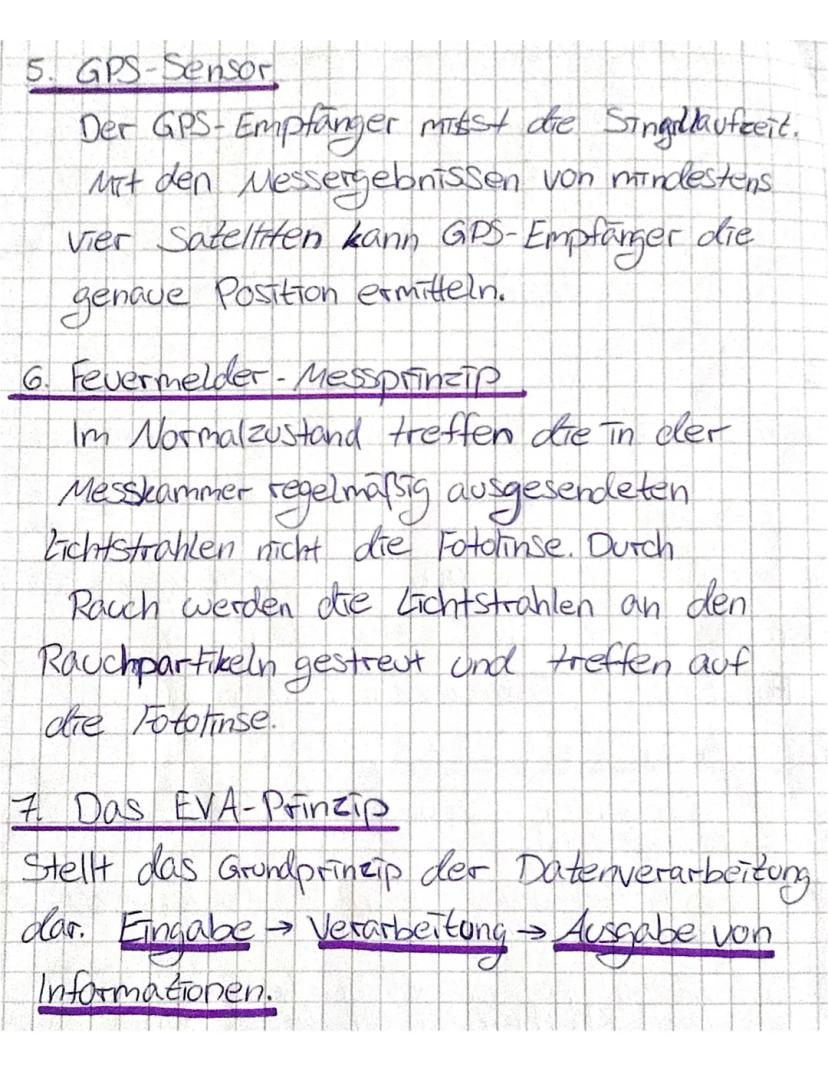 5. GPS-Sensor
Der GPS-Empfänger misst die Singallaufzeit.
Mit den Messergebnissen von mindestens
vier Satelliten kann GPS-Empfänger die
genaue Position ermitteln.
6. Feuermelder-Messprinzip
Im Normalzustand treffen die in der
Messkammer regelmäßig ausgesendeten
Lichtstrahlen nicht die Fotolinse. Durch
Rauch werden die Lichtstrahlen an den
Rauchpartikeln gestreut und treffen auf
die Fotolinse.
7. Das EVA-Prinzip
Stellt das Grundprinzip der Datenverarbeitung
dar. Eingabe → Verarbeitung → Ausgabe von
Informationen.